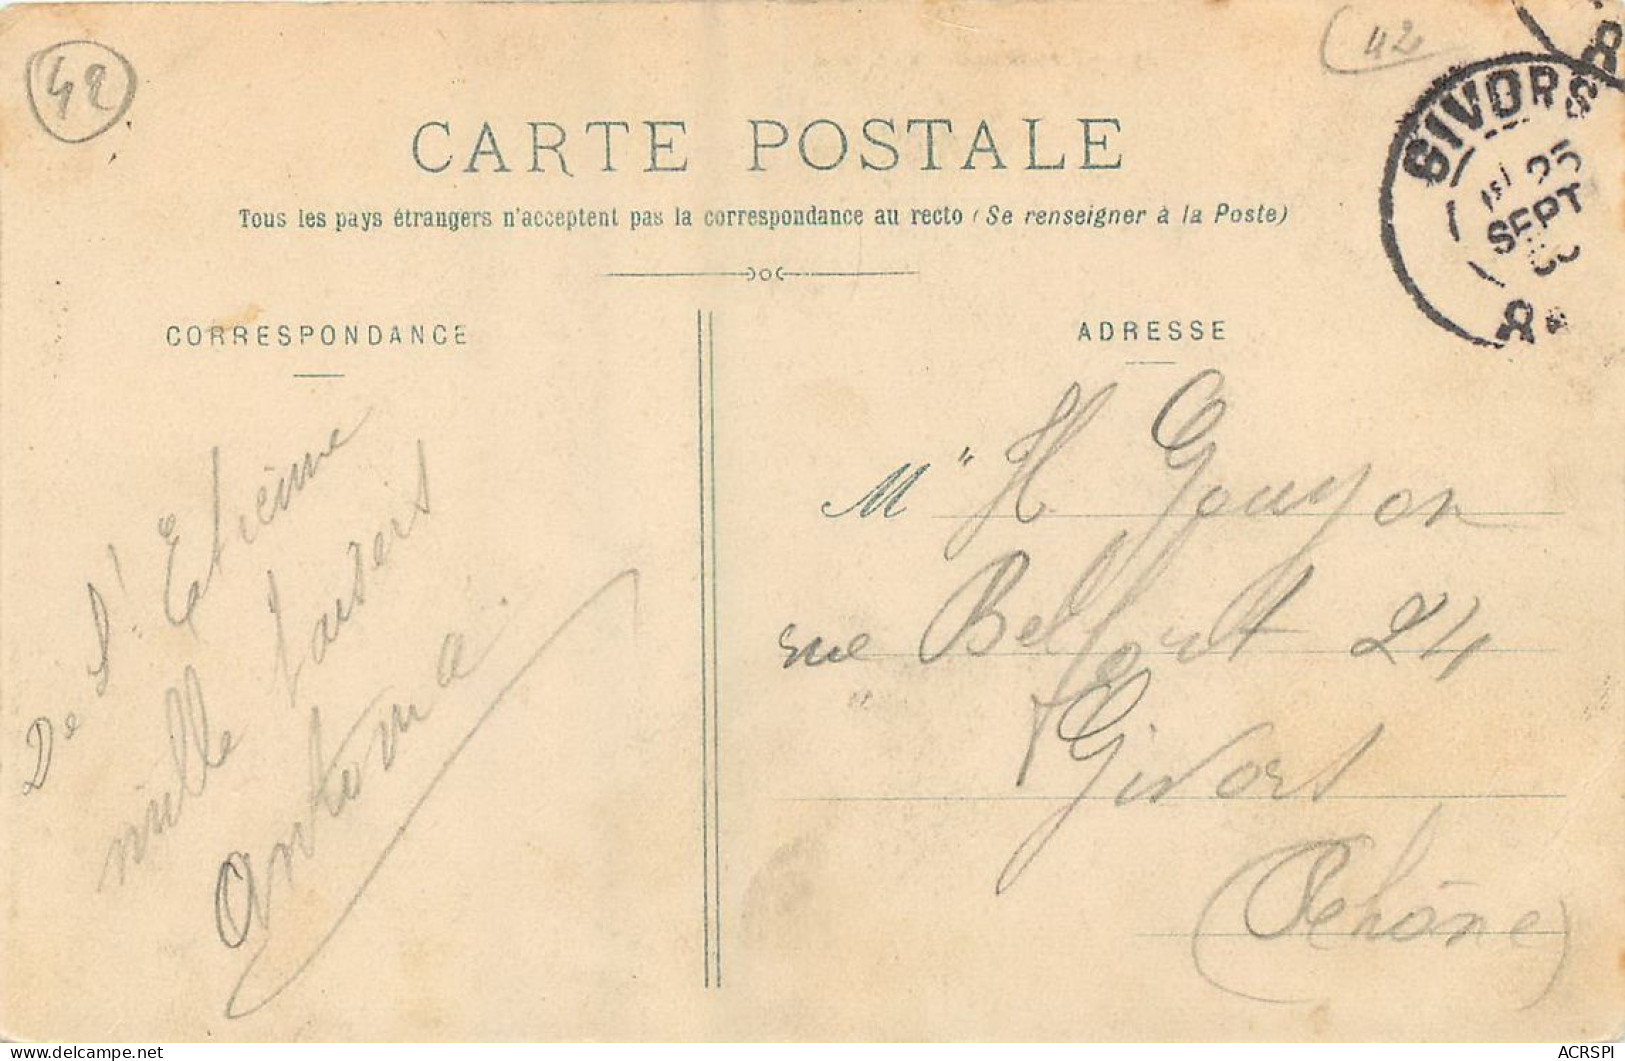 42
42
CARTE POSTALE
Tous les pays étrangers n'acceptent pas la correspondance au recto (Se renseigner à la Poste)
GIVORS
25
SEPT
CORRESPONDANCE
De St. Etienne
mille baisers
Antonia
ADRESSE
M H Gouyon
rue Belfort 24
Givors
(Rhône)
delcampe.net
ACRSPI